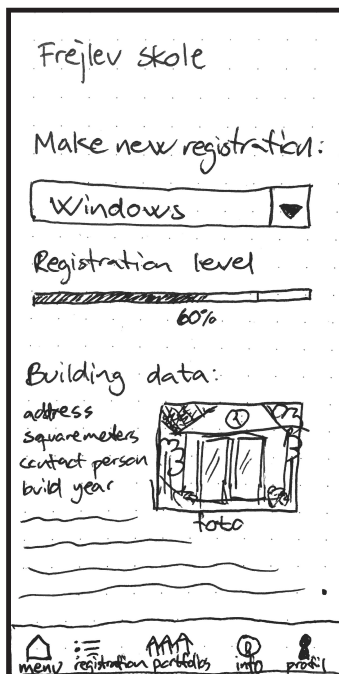 Frejlev skole
Make new registration:
Windows
Registration level
60%
Building data:
address
squaremeters
contact person
build year
foto
menu registration portfolios info profil